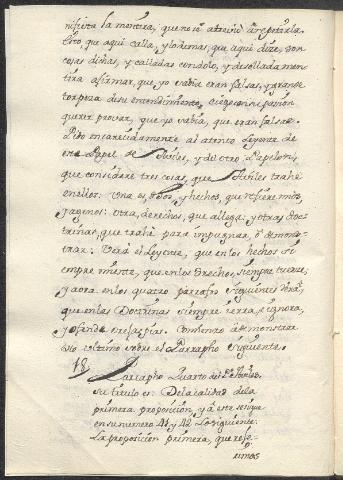 nifiesta la mentira, que no se atreuiò à repetirla.
Esto, que aqui calla, y lo demas, que aqui dize, son
cosas dichas, y calladas con dolo, y desollada men-
tira afirmar, que yo sabia eran falsas, y grande
torpeza de su entendimiento, ciego con su passion
querer provar, que yo sabia, que eran falsas.
Pido encarecidamente al atento Leyente de
este Papel de Aviles, y del otro Papelon,
que considere tres cosas, que Aviles trahe
en ellos: Una es, y hechos, que refiere mios,
y agenos: otra, derechos, que allega: y otras doc-
trinas, que trahe para impugnar, ò demons-
trar. Verà el Leyente, que en los hechos si-
empre miente, que en los Derechos, siempre tuerce,
y aora en los quatro parrafos siguientes verà,
que en las Doctrinas siempre yerra, è ignora,
y ofende en ellas. Comienzo à demonstrar
esto ultimo sobre el Parrapho siguiente.
18 Parrapho Quarto del Pe. Aviles.
su titulo es: De la calidad de la
primera proposicion, y à este se sigue
en su numero 41 y 42 lo siguiente:
La proposicion primera, que refe-
rimos